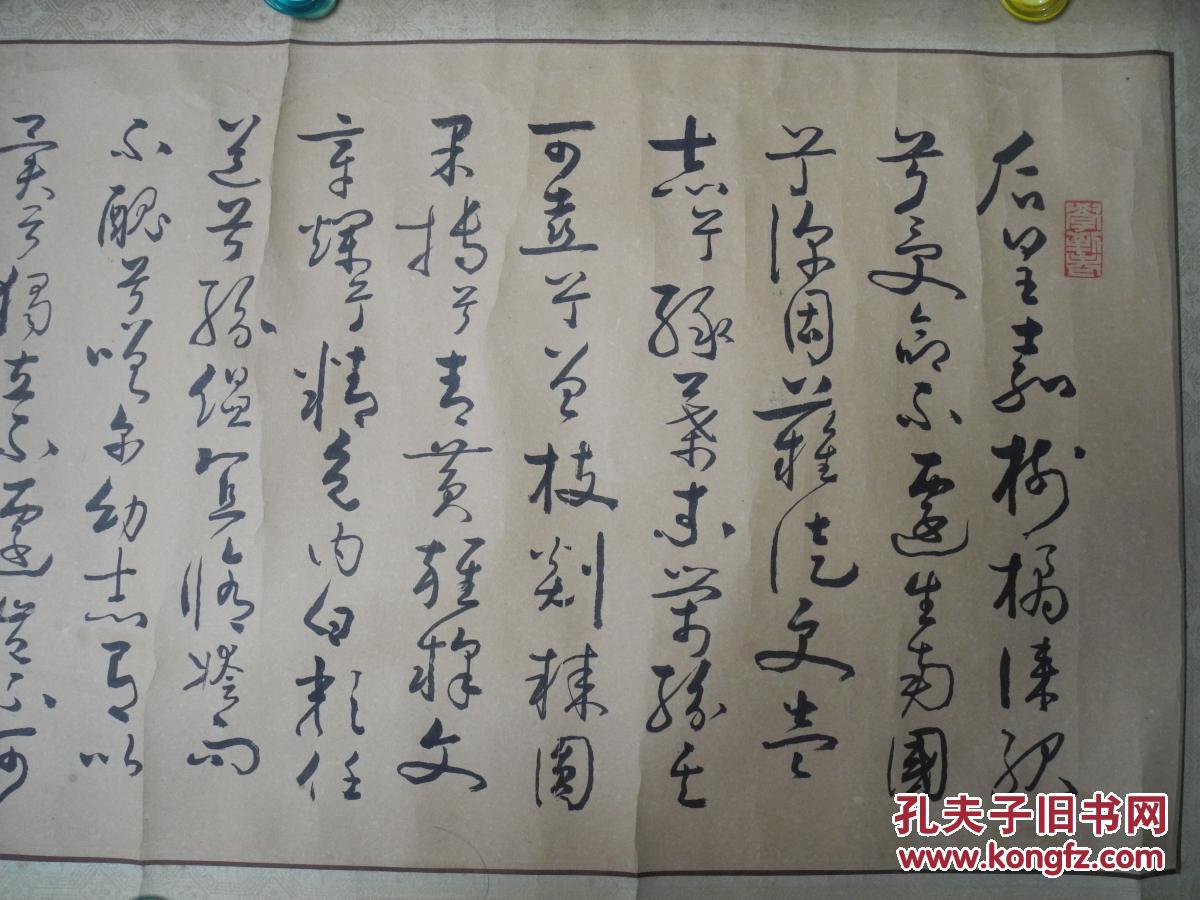 后皇嘉樹橘徠服
兮受命不遷生南國
兮深固難徙更壹
志兮綠葉素榮紛其
可喜兮曾枝剡棘圓
果摶兮青黃雜糅文
章爛兮精色內白類任
道兮紛縕宜脩姱而
不醜兮嗟爾幼志有以
異兮獨立不遷豈不可
孔夫子旧书网
www.kongfz.com